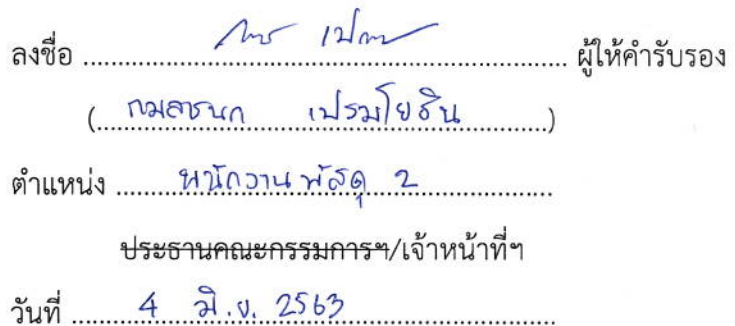 ลงชื่อ ................................ ผู้ให้คำรับรอง
( กมลชนก เปรมโยธิน )
ตำแหน่ง พนักงานพัสดุ 2
ประธานคณะกรรมการฯ/เจ้าหน้าที่ฯ
วันที่ 4 มิ.ย. 2563